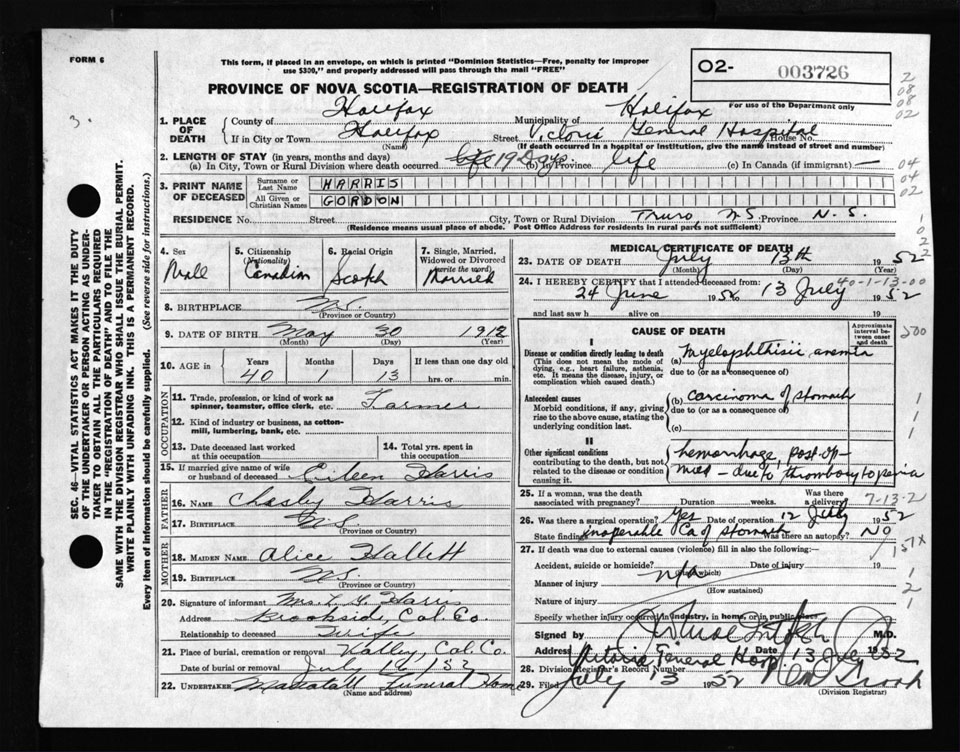 FORM 6
This form, if placed in an envelope, on which is printed "Dominion Statistics—Free, penalty for improper
use $300," and properly addressed will pass through the mail "FREE"
02- 003726
For use of the Department only
PROVINCE OF NOVA SCOTIA—REGISTRATION OF DEATH
3.
1. PLACE OF DEATH
County of Halifax Municipality of Halifax
If in City or Town Halifax Street Victoria General Hospital House No.
(Name) (If death occurred in a hospital or institution, give the name instead of street and number)
2. LENGTH OF STAY (in years, months and days)
(a) In City, Town or Rural Division where death occurred 19 Days (b) In Province life (c) In Canada (if immigrant) —
3. PRINT NAME OF DECEASED
Surname or Last Name HARRIS
All Given or Christian Names GORDON
RESIDENCE No. Street City, Town or Rural Division Truro, N.S. Province N.S.
(Residence means usual place of abode. Post Office Address for residents in rural parts not sufficient)
4. Sex Male
5. Citizenship (Nationality) Canadian
6. Racial Origin Scotch
7. Single, Married, Widowed or Divorced (write the word) Married
8. BIRTHPLACE N.S.
(Province or Country)
9. DATE OF BIRTH May 30 1912
(Month) (Day) (Year)
10. AGE in Years Months Days If less than one day old
40 1 13 hrs. or min.
OCCUPATION
11. Trade, profession, or kind of work as spinner, teamster, office clerk, etc. Farmer
12. Kind of industry or business, as cotton-mill, lumbering, bank, etc.
13. Date deceased last worked at this occupation
14. Total yrs. spent in this occupation
15. If married give name of wife or husband of deceased Eileen Harris
FATHER
16. NAME Chesley Harris
17. BIRTHPLACE N.S.
(Province or Country)
MOTHER
18. MAIDEN NAME Alice Hallett
19. BIRTHPLACE N.S.
(Province or Country)
20. Signature of informant Mrs. L. G. Harris
Address Brookside, Col. Co.
Relationship to deceased Wife
21. Place of burial, cremation or removal Valley, Col. Co.
Date of burial or removal July 16 152
22. UNDERTAKER Mattatall Funeral Home
(Name and address)
MEDICAL CERTIFICATE OF DEATH
23. DATE OF DEATH July 13th 1952
(Month) (Day) (Year)
24. I HEREBY CERTIFY that I attended deceased from
24 June 1952 to 13 July 1952
and last saw h alive on 19
40-1-13-00
CAUSE OF DEATH
Approximate interval between onset and death
I
Disease or condition directly leading to death
(This does not mean the mode of dying, e.g., heart failure, asthenia, etc. It means the disease, injury, or complication which caused death.
(a) Myelophthisic anemia
due to (or as a consequence of)
Antecedent causes
Morbid conditions, if any, giving rise to the above cause, stating the underlying condition last.
(b) Carcinoma of stomach
due to (or as a consequence of)
(c)
II
Other significant conditions
contributing to the death, but not related to the disease or condition causing it.
hemorrhage, post-op—
due to thrombocytopenia
25. If a woman, was the death associated with pregnancy? Duration weeks. Was there a delivery?
7-13-2
26. Was there a surgical operation? Yes Date of operation 12 July 1952
State findings inoperable Ca of stomach Was there an autopsy? No
27. If death was due to external causes (violence) fill in also the following:—
Accident, suicide or homicide? Date of injury 19
(State which) n/a
Manner of injury
(How sustained)
Nature of injury
Specify whether injury occurred in industry, in home, or in public place
Signed by M.D.
Address Victoria General Hosp. Date 13 July 1952
28. Division Registrar's Record Number
29. Filed July 13 1952
(Division Registrar)
SEC. 46—VITAL STATISTICS ACT MAKES IT THE DUTY
OF THE UNDERTAKER OR PERSON ACTING AS UNDER-
TAKER TO OBTAIN ALL THE PARTICULARS REQUIRED
IN THE "REGISTRATION OF DEATH" AND TO FILE THE
SAME WITH THE DIVISION REGISTRAR WHO SHALL ISSUE THE BURIAL PERMIT.
WRITE PLAINLY WITH UNFADING INK. THIS IS A PERMANENT RECORD.
Every item of information should be carefully supplied. (See reverse side for instructions.)